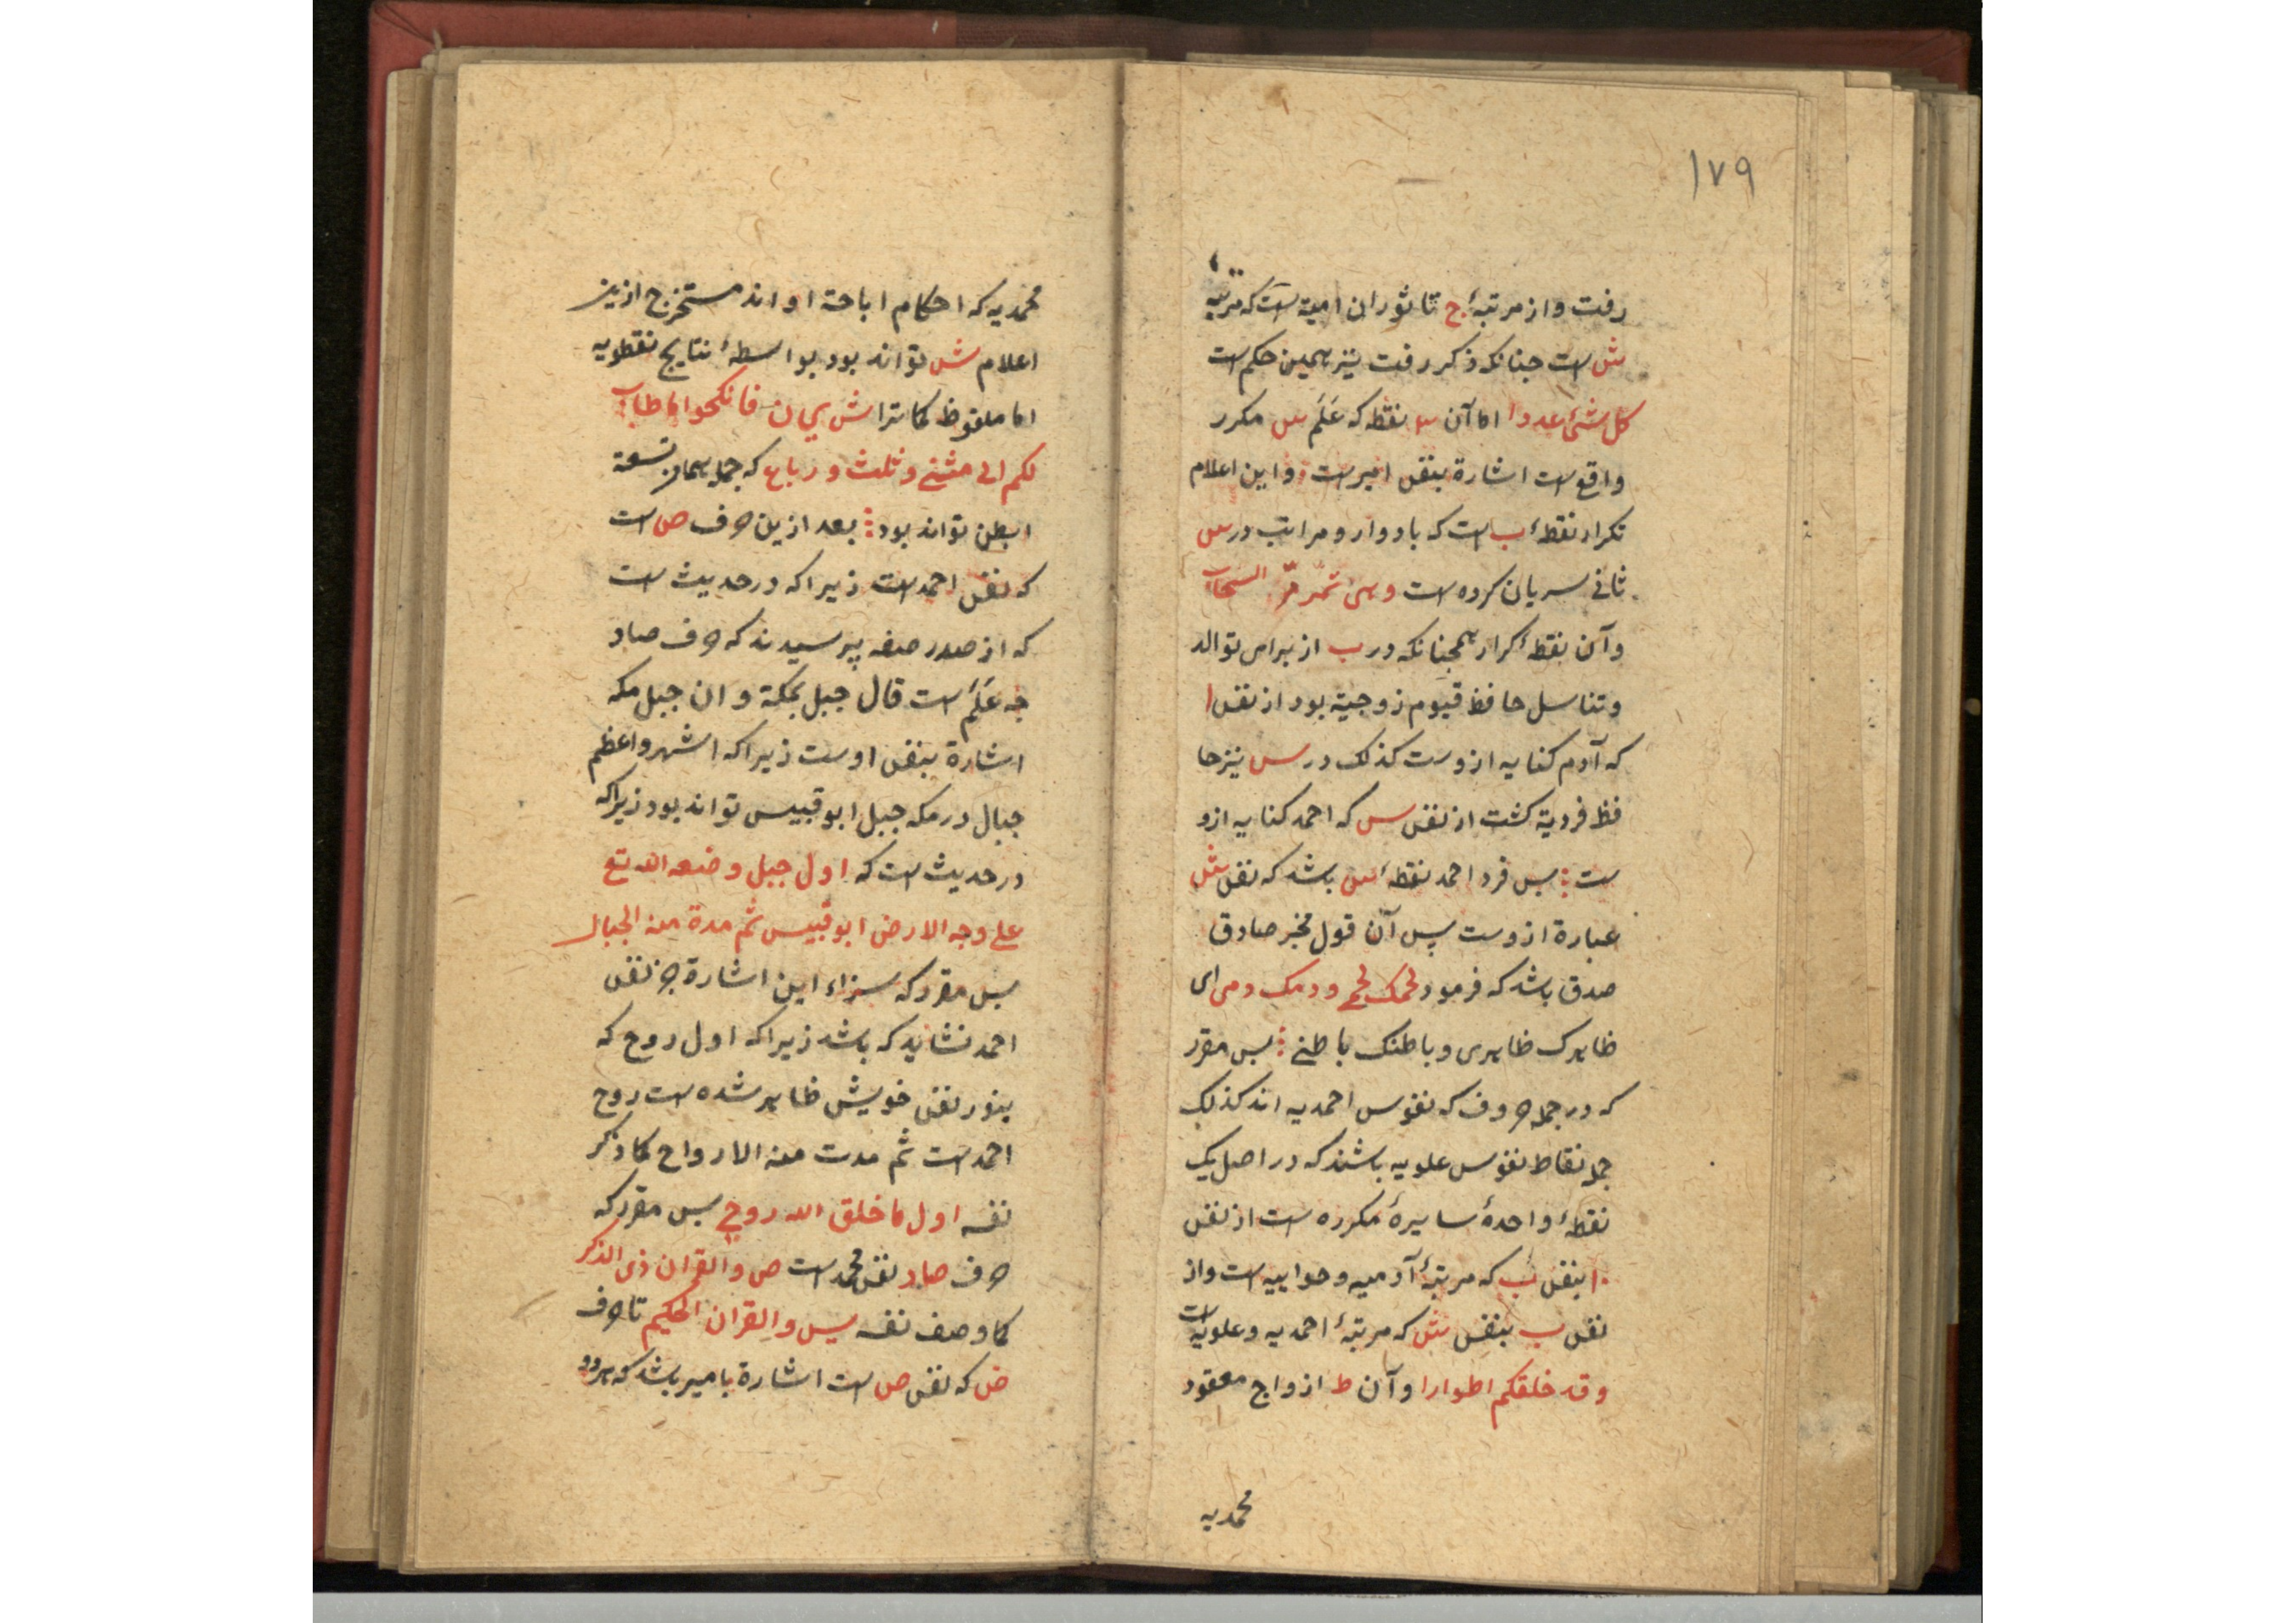 ۱۷۹
رفت واز مرتبهٔ ج تا ثوران امیة است که مرتبه
ش است جنانکه ذکر رفت نیز همین حکم است
کل شئ عددا اما آن ۳ نقطه که عَلَم س مکرر
واقع است اشارة بنفس امیر است واین اعلام
تکرار نقطهٔ ب است که بادوار و مراتب در س
ثانی سریان کرده است وهی تمر مرّ السحاب
وآن نقطهٔ کرار همجنانکه در ب از براس توالد
وتناسل حافظ قیوم زوجیة بود از نفس ا
که آدم کنایه ازوست کذلک در س نیز حا
فظ فردیة کشت از نفس س که احمد کنایه ازو
ست بس فرد احمد نقطهٔ س باشد که نفس ش
عبارة ازوست پس آن قول مخبر صادق
صدق باشد که فرمود لحمک لحمی ودمک دمی ای
ظاهرک ظاهری وباطنک باطنی بس مقرر
که در جمله حروف که نفوس احمدیه اند کذلک
جمله نقاط نفوس علویه باشند که در اصل یک
نقطهٔ واحدهٔ سایرهٔ مکرره است از نفس
ا بنفس ب که مرتبهٔ آدمیه وحواییه است واز
نفس ب بنفس ش که مرتبهٔ احمدیه وعلویه است
وقد خلقکم اطوارا وآن ط ازواج معقود
محمدیه
محمدیه که احکام اباحة او اند مستخرج ازین
اعلام ش تواند بود بواسطهٔ نتایج نقطویه
اما ملفوظ کما ترا ش ی ان فانکحوا ما طاب
لکم الی مثنی وثلث ورباع که جمله بسماوتسعة
ابطن تواند بود بعد ازین حرف ص است
که نفس احمد است زیراکه در حدیث است
که از صدر صفه پرسیدند که حرف صاد
جه عَلَم است قال جبل بمکة وان جبل مکه
اشارة بنفس اوست زیراکه اشهر واعظم
جبال در مکه جبل ابوقبیس تواند بود زیراکه
در حدیث است که اول جبل وضعه الله تع
علی وجه الارض ابوقبیس ثم مدة منه الجبال
بس مقرر که سزاء این اشارة جز نفس
احمد نشاید که باشد زیراکه اول روح که
بنور نفس خویش ظاهر شده است روح
احمد است ثم مدت منه الارواح کما ذکر
نفسه اول ما خلق الله روحی بس مقرر که
حرف صاد نفس محمد است ص والقران ذی الذکر
کما وصف نفسه یس والقران الحکیم تا حرف
ض که نفس ص است اشارة بامیر باشد که هر دو